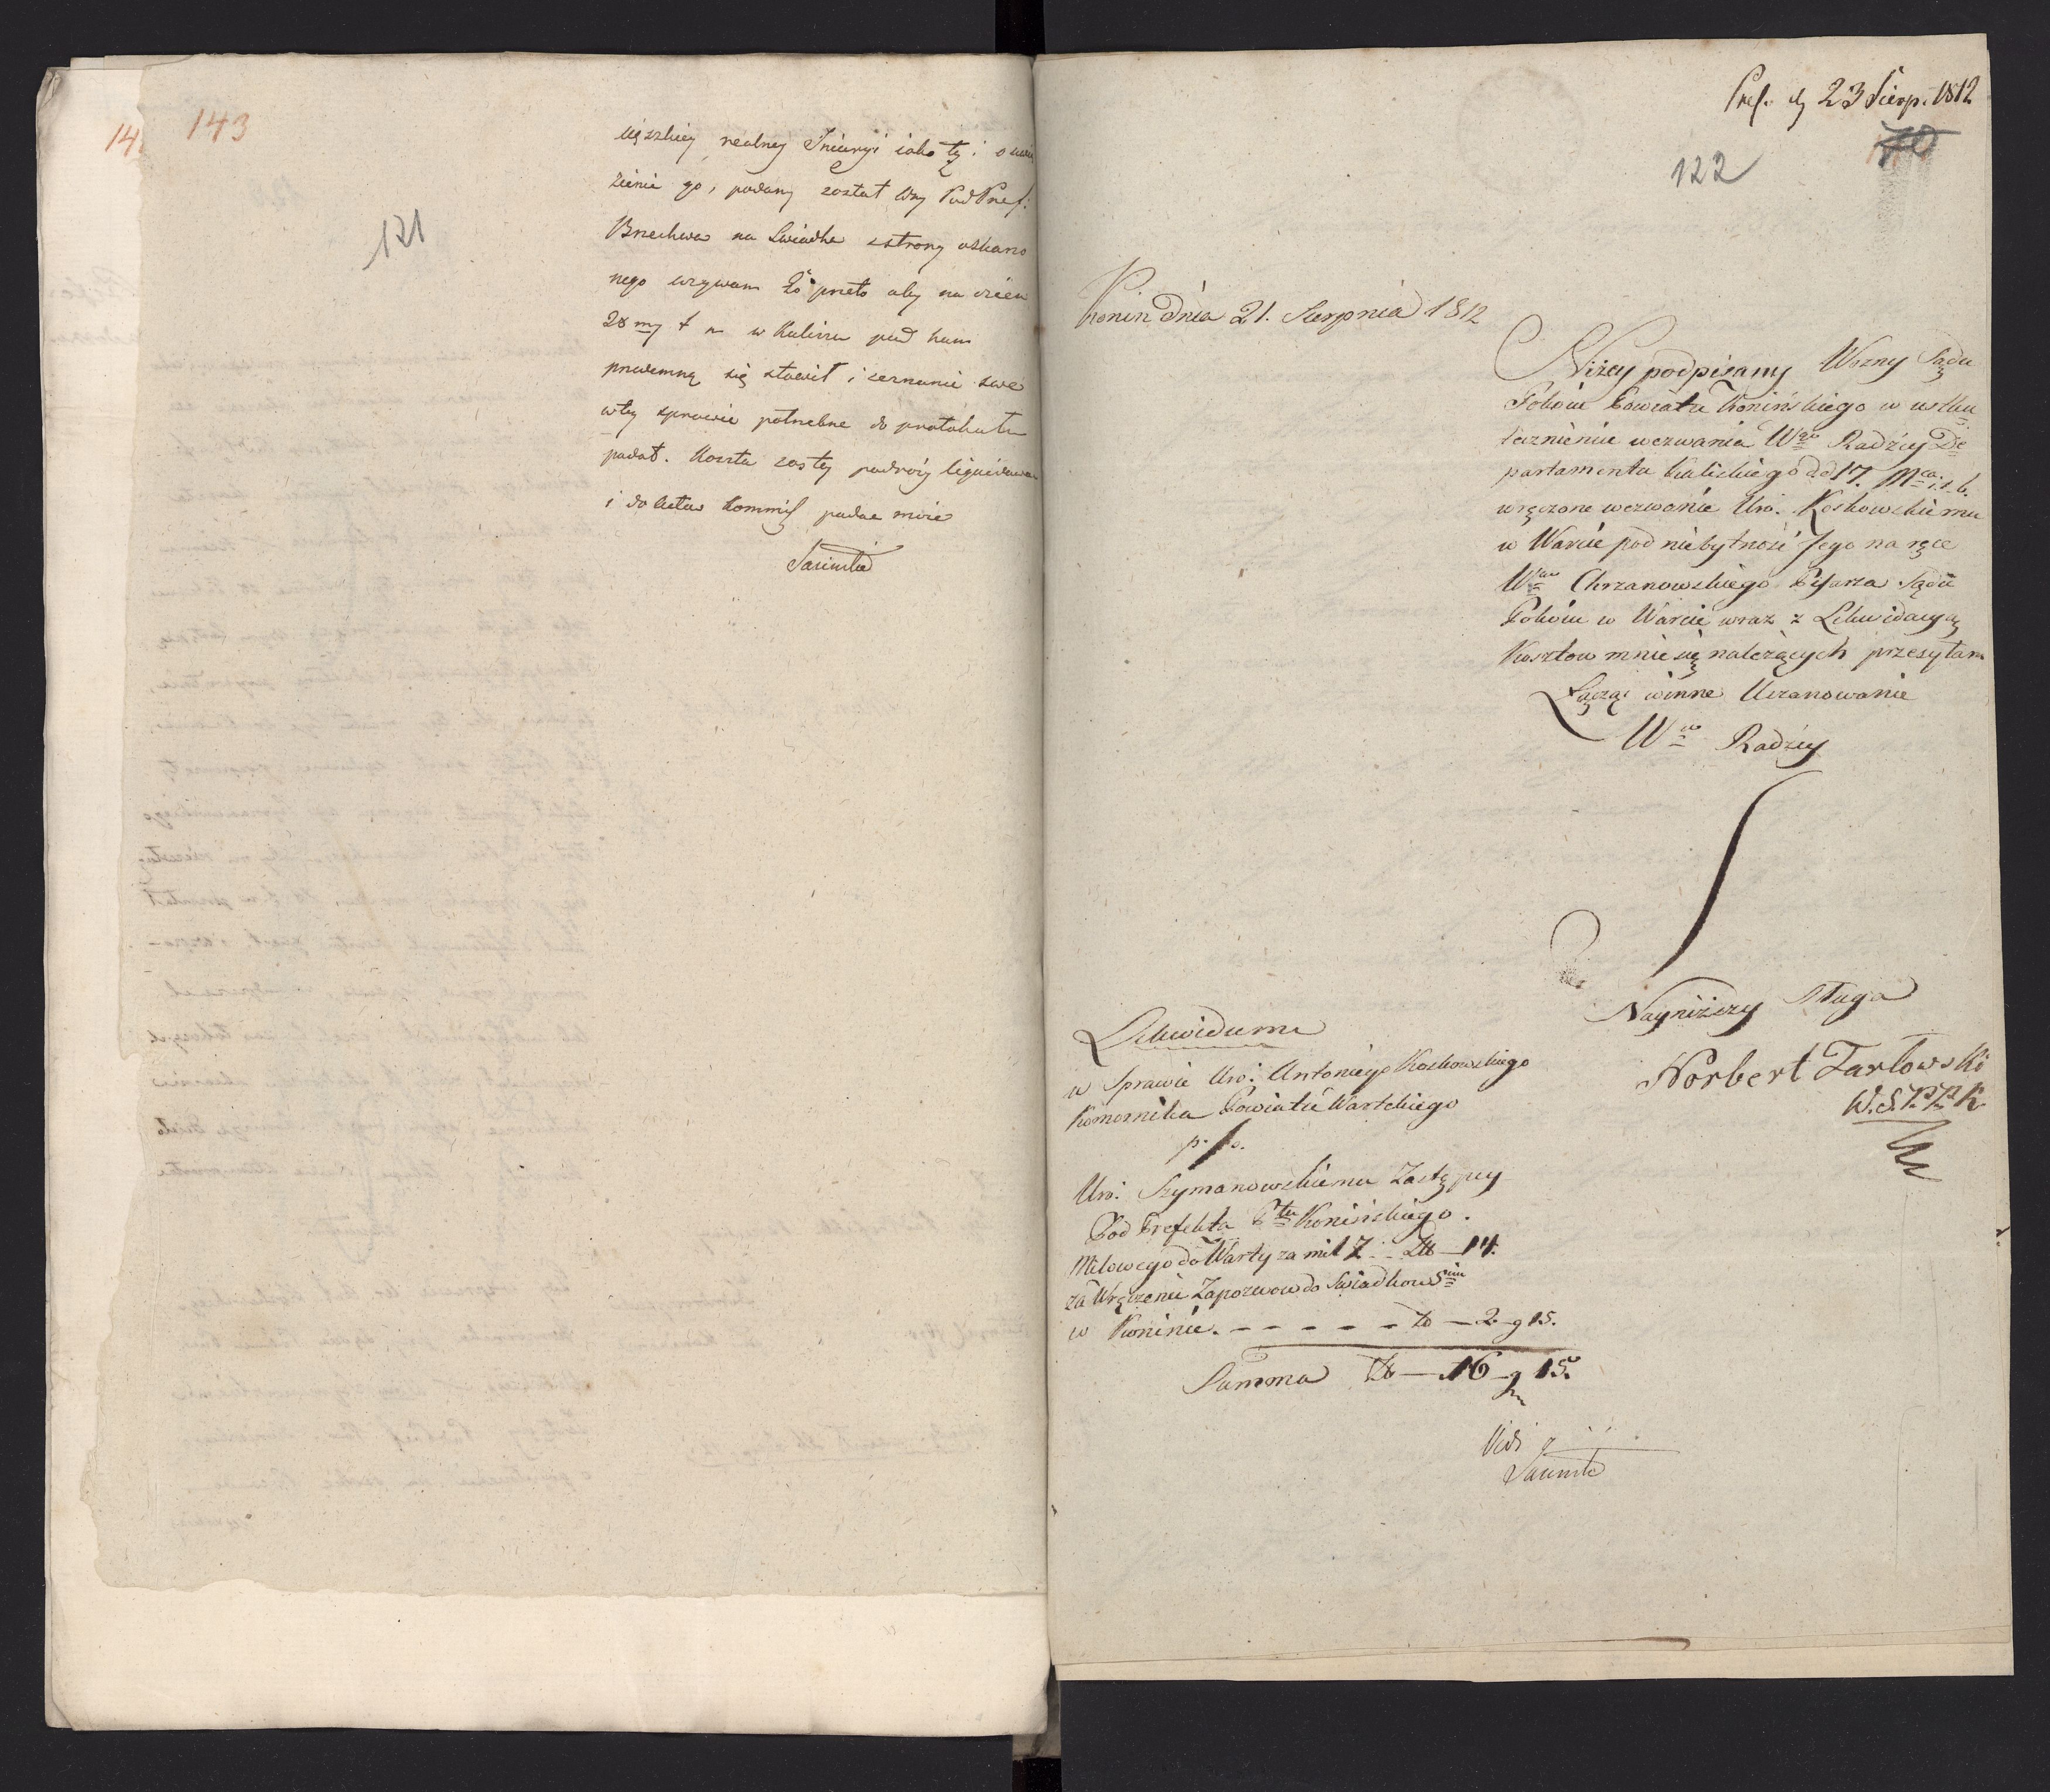 143
121
cięszkiey realney Iniuryi iako tę i o uwię
zienie go, podany został Wny PodPref:
Brzechwa na Swiadka z strony oskarzo
nego wzywam Go przeto aby na dzien
28 my t m w Kaliszu pod ham
przedemną się stawił i zeznanie swe
w tey sprawie potrzebne do protokułu
podał. Koszta zas tey podróży liquidowa
i do Aktow Kommiss podae może
Pres. dj 23 Sierp. 1812
70
122
Konin dnia 21. Sierpnia 1812
Niżey podpisany Wozny Sądu
Pokoiu Powiatu Konińskiego w usku
tecznieniu wezwania Wgo Radźcy De
partamentu Kaliskiego dd 17. Mca. i. r. b.
wręczone wezwanie Uro. Koskowskiemu
w Warcie pod niebytność Jego na ręce
Wgo Chrzanowskiego Pisarza Sądu
Pokoiu w Warcie wraz z Likwidacyą
Kosztow mnie się należących przesyłam
Łącząc winne Uszanowanie
Wgo Radźcy
Nayniższy Sługa
Norbert Tarłowski
W.S.P.P.K
Likwidum
w Sprawie Uro: Antoniego Koskowskiego
Komornika Powiatu Wartskiego
p.ko.
Uro: Szymanowskiemu Zastępcy
Pod Prefekta Ptu Konińskiego.
Milowego do Warty za mil 7 .. Zł — 14.
za Wręczenie Zapozwow do Swiadkow 5ciu
w Koninie. - - - - - - Zł — 2 g 15.
Summa Zł — 16 g 15.
Vidi